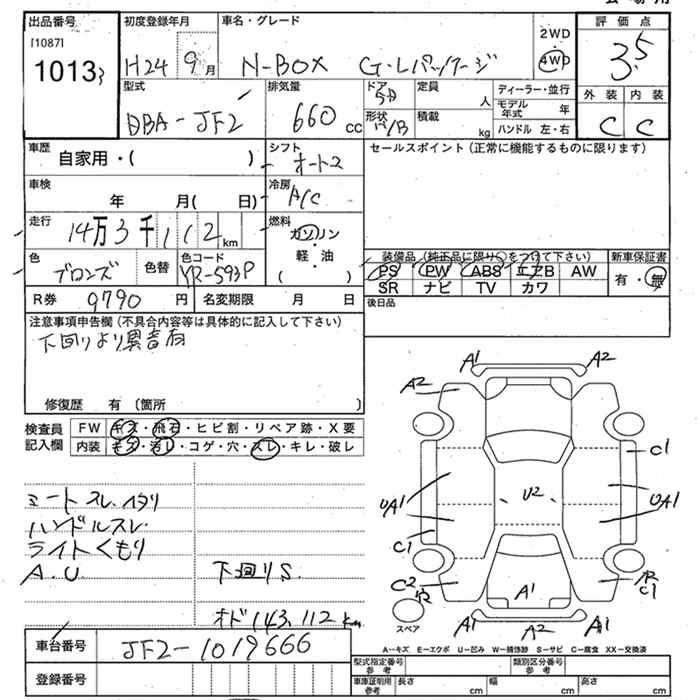 出品番号
[1087]
1013
初度登録年月
H24 9月
車名・グレード
N-BOX G・Lパッケージ
2WD
4WD
評価点
3.5
外装 内装
C C
型式
DBA-JF2
排気量
660 cc
ドア 5D
形状 H/B
定員 人
積載 kg
ディーラー・並行
モデル年式 年
ハンドル 左・右
車歴 自家用・( )
シフト オートマ
車検 年 月( 日)
冷房 A/C
走行 14万3千112km
燃料 ガソリン・軽・油 ( )
色 ブロンズ 色替
色コード YR-593P
R券 9790円 名変期限 月 日
セールスポイント(正常に機能するものに限ります)
装備品(純正品に限り○をつけて下さい) 新車保証書
PS PW ABS エアB AW 有・無
SR ナビ TV カワ
後日品
注意事項申告欄(不具合内容等は具体的に記入して下さい)
下回りより異音有
修復歴 有 (箇所 )
検査員記入欄
FW キズ・飛石・ヒビ割・リペア跡・X要
内装 キズ・汚レ・コゲ・穴・スレ・キレ・破レ
シートスレ、ヘタリ
ハンドルスレ
ライトくもり
A.U.
下回りS.
オド143,112km
車台番号 JF2-1019666
登録番号
A1 A2
A2
C1
UA1 U2 UA1
C1
C2 C1
A1
A1 A2 A1
スペア
A-キズ E-エクボ U-凹み W-補修跡 S-サビ C-腐食 XX-交換済
型式指定番号 参考
類別区分番号 参考
車庫証明用 参考 長さ cm 幅 cm 高さ cm